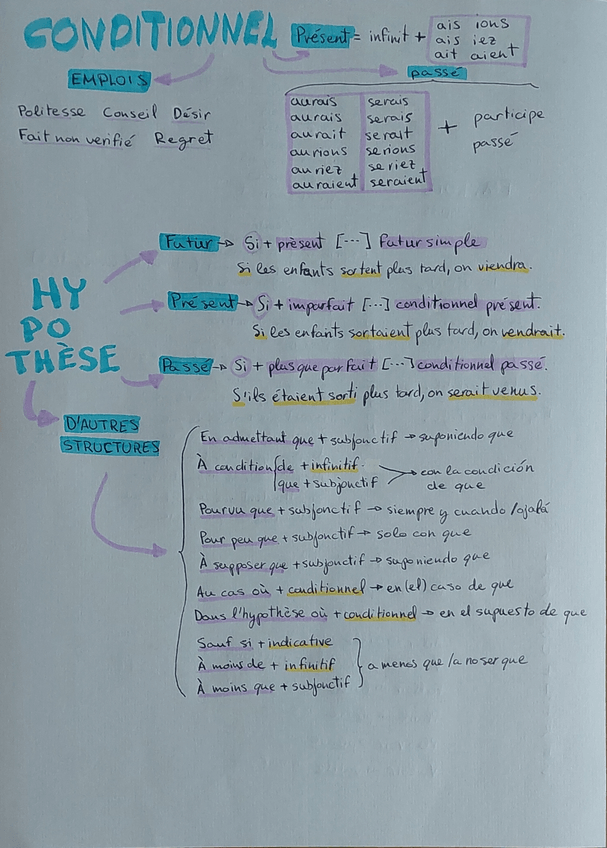 CONDITIONNEL
Présent = infinit + ais ions
ais iez
ait aient
EMPLOIS
passé
Politesse Conseil Désir
Fait non verifié Regret
aurais serais
aurais serais
aurait serait
aurions serions
auriez seriez
auraient seraient
+ participe
passé
HY
PO
THÈSE
Futur → Si + présent [...] Futur simple
Si les enfants sortent plus tard, on viendra.
Présent → Si + imparfait [...] conditionnel présent.
Si les enfants sortaient plus tard, on vendrait.
Passé → Si + plus que parfait [...] conditionnel passé.
S'ils étaient sorti plus tard, on serait venus.
D'AUTRES
STRUCTURES
En admettant que + subjonctif → suponiendo que
À condition de + infinitif.
que + subjonctif
→ con la condición
de que
Pourvu que + subjonctif → siempre y cuando /ojalá
Pour peu que + subjonctif → solo con que
À supposer que + subjonctif → suponiendo que
Au cas où + conditionnel → en (el) caso de que
Dans l'hypothèse où + conditionnel → en el supuesto de que
Sauf si + indicative
À moins de + infinitif
À moins que + subjonctif
a menos que /a no ser que